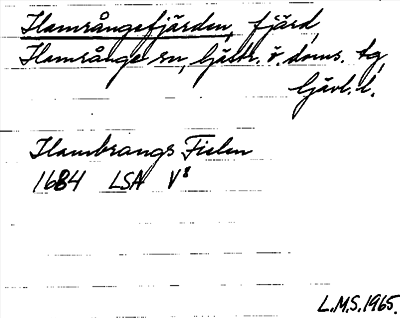 Hamrångefjärden, fjärd,
Hamrånge sn, Gästr. ö. doms. tg,
Gävl. l.
Hambrangs Fielen
1684 LSA V⁸
L.M.S. 1965.